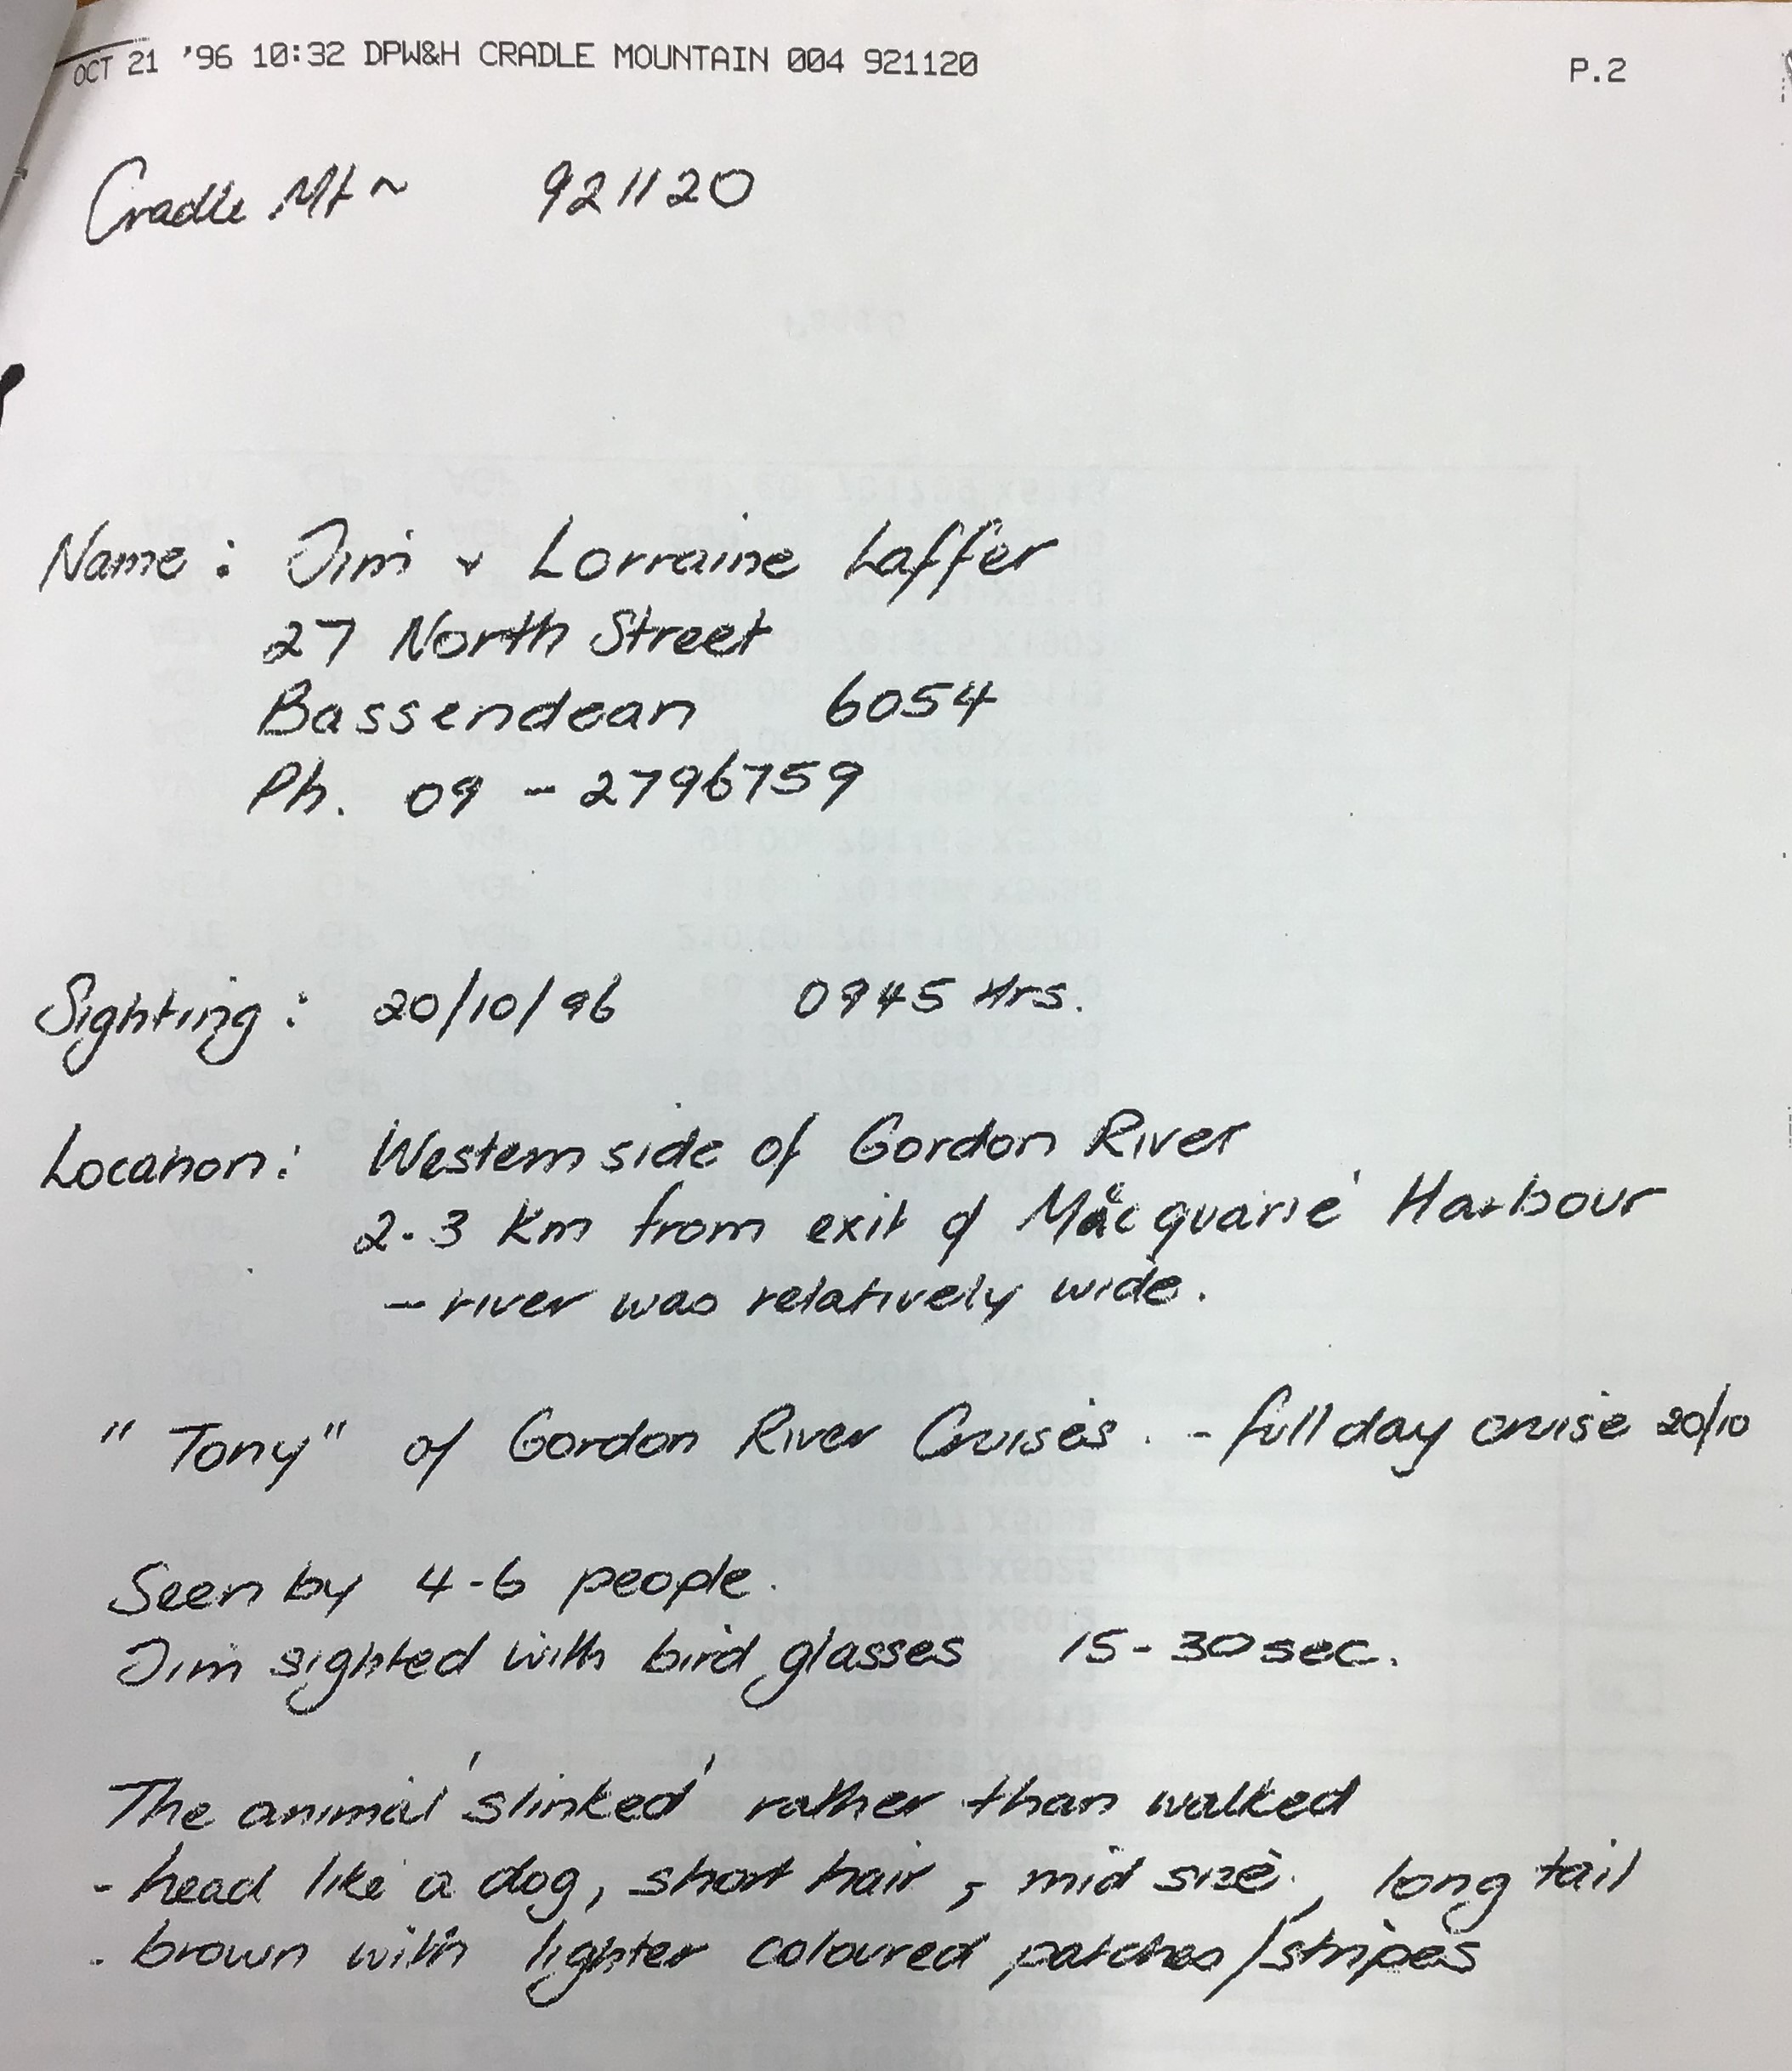 OCT 21 '96 10:32 DPW&H CRADLE MOUNTAIN 004 921120 P.2
Cradle Mt ~ 921120
Name : Jim + Lorraine Laffer
27 North Street
Bassendean 6054
Ph. 09 - 2796759
Sighting : 20/10/96 0945 Hrs.
Location : Western side of Gordon River
2-3 Km from exit of Macquarie Harbour
- river was relatively wide.
"Tony" of Gordon River Cruises. - full day cruise 20/10
Seen by 4-6 people.
Jim sighted with bird glasses 15-30 sec.
The animal 'slinked' rather than walked
- head like a dog, short hair, mid size, long tail
- brown with lighter coloured patches/stripes